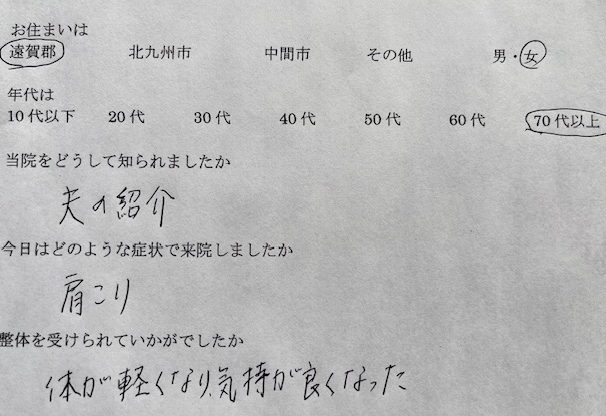 お住まいは
遠賀郡 北九州市 中間市 その他 男・女
年代は
10代以下 20代 30代 40代 50代 60代 70代以上
当院をどうして知られましたか
夫の紹介
今日はどのような症状で来院しましたか
肩こり
整体を受けられていかがでしたか
体が軽くなり、気持が良くなった